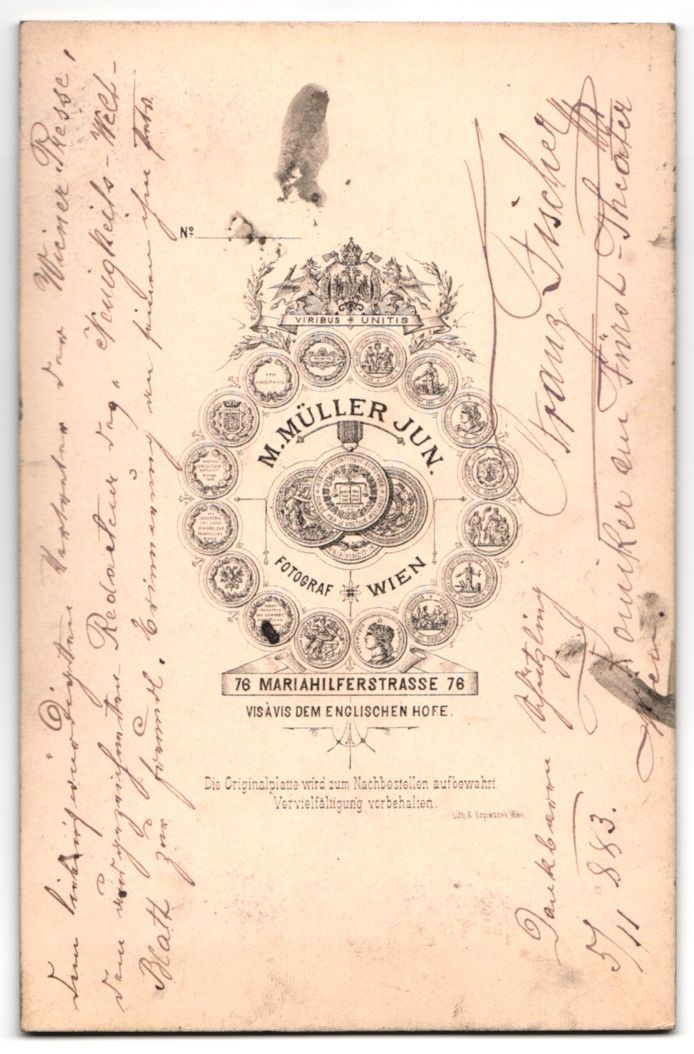 Dem liebenswürdigsten Vertreter der Wiener Presse,
dem ausgezeichneten Redacteur des „Neuigkeits-Welt-
Blatt zur freundl. Erinnerung an seinen ihm
Dankbaren Schützling
5/11 883.
Franz Fischer
Komiker am Fürst-Theater
Wien.
No
VIRIBUS UNITIS
M. MÜLLER JUN.
FOTOGRAF WIEN
76 MARIAHILFERSTRASSE 76
VISÀVIS DEM ENGLISCHEN HOFE.
Die Originalplatte wird zum Nachbestellen aufbewahrt.
Vervielfältigung vorbehalten.